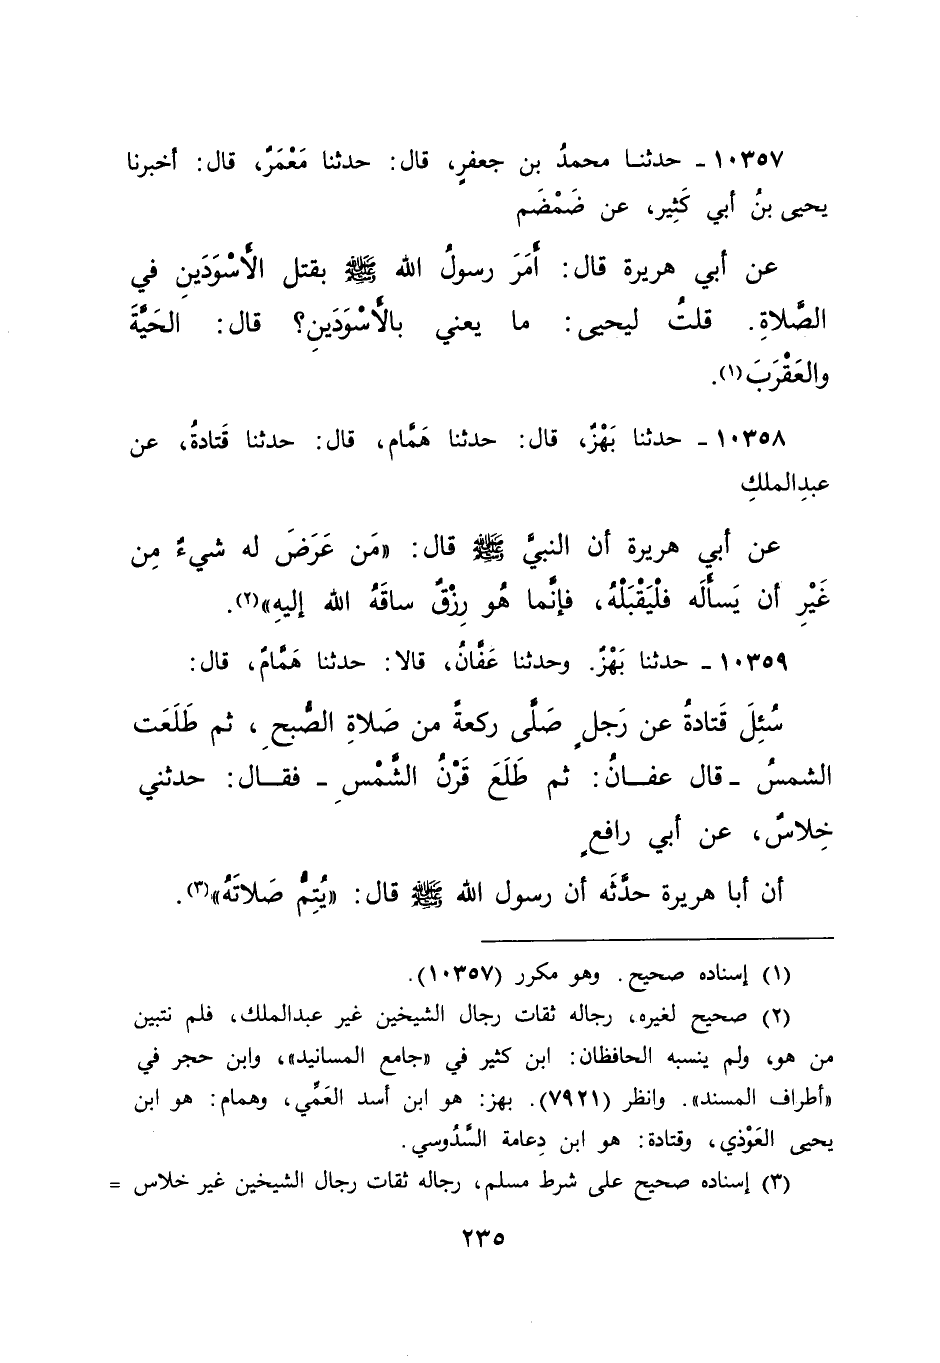 ١٠٣٥٧ ـ حدثنـا محمدُ بن جعفرٍ، قال: حدثنا مَعْمَرٌ، قال: أخبرنا
يحيى بنُ أبي كَثِير، عن ضَمْضَم
عن أبي هريرة قال: أَمَرَ رسولُ الله ﷺ بقتل الأَسْوَدَينِ في
الصَّلاةِ. قلتُ ليحيى: ما يعني بالأَسْوَدَينِ؟ قال: الحَيَّةَ
والعَقْرَبَ(١).
١٠٣٥٨ ـ حدثنا بَهْزٌ، قال: حدثنا هَمَّام، قال: حدثنا قَتادةُ، عن
عبدِالملكِ
عن أبي هريرة أن النبيَّ ﷺ قال: «مَن عَرَضَ له شيءٌ مِن
غَيْرِ أن يَسأَلَه فلْيَقْبَلْهُ، فإنَّما هُو رِزْقٌ ساقَهُ الله إليهِ»(٢).
١٠٣٥٩ ـ حدثنا بَهْزٌ. وحدثنا عَفَّانُ، قالا: حدثنا هَمَّامٌ، قال:
سُئِلَ قَتادةُ عن رَجلٍ صَلَّى ركعةً من صَلاةِ الصُّبحِ، ثم طَلَعَت
الشمسُ ـ قال عفــانُ: ثم طَلَعَ قَرْنُ الشَّمْسِ ـ فقــال: حدثني
خِلاسٌ، عن أبي رافعٍ
أن أبا هريرة حدَّثَه أن رسول الله ﷺ قال: «يُتِمُّ صَلاتَهُ»(٣).
(١) إسناده صحيح. وهو مكرر (١٠٣٥٧).
(٢) صحيح لغيره، رجاله ثقات رجال الشيخين غير عبدالملك، فلم نتبين
من هو، ولم ينسبه الحافظان: ابن كثير في «جامع المسانيد»، وابن حجر في
«أطراف المسند». وانظر (٧٩٢١). بهز: هو ابن أسد العَمِّي، وهمام: هو ابن
يحيى العَوْذي، وقتادة: هو ابن دِعامة السَّدُوسي.
(٣) إسناده صحيح على شرط مسلم، رجاله ثقات رجال الشيخين غير خلاس =
٢٣٥